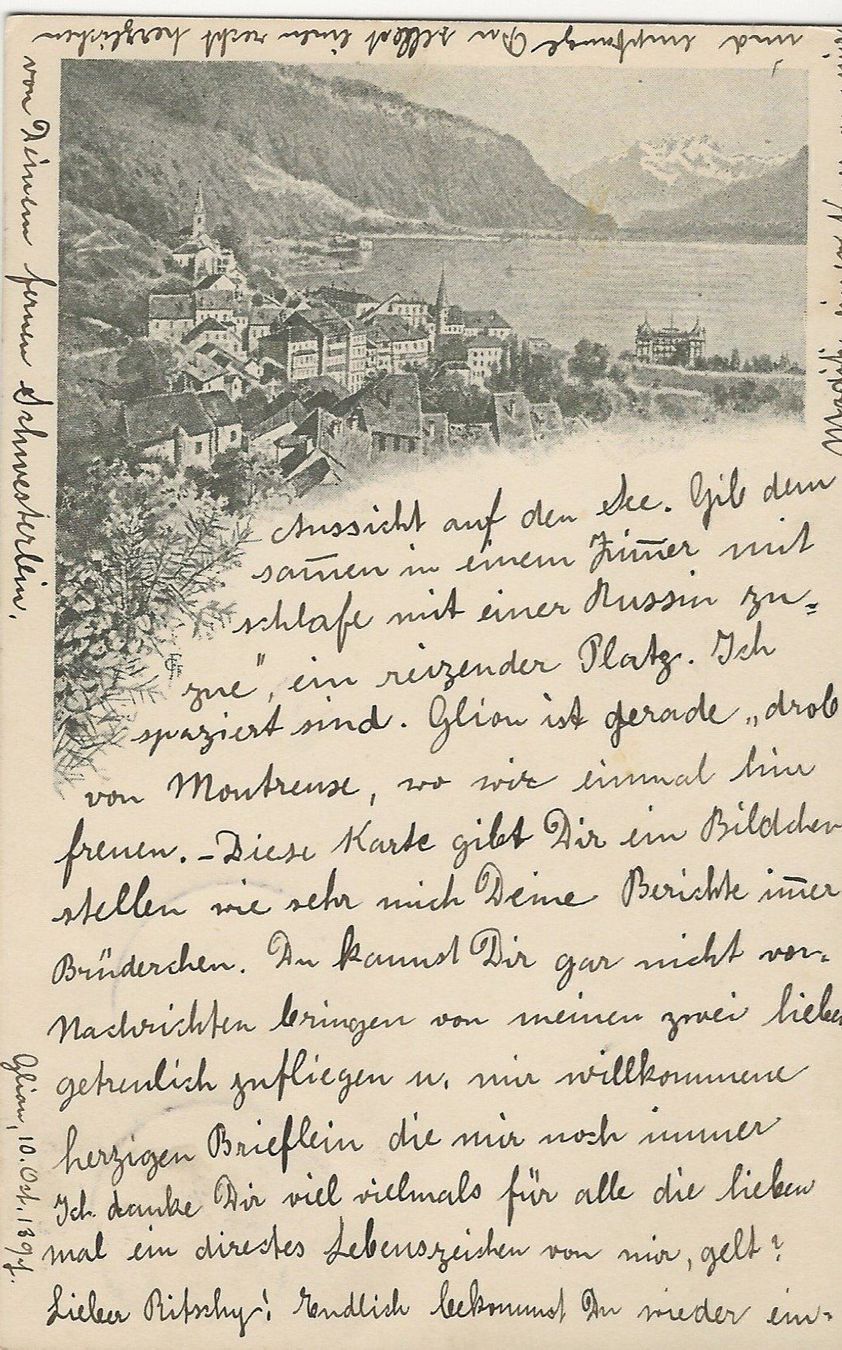 Glion, 10. Oct. 1897.
Lieber Ritschy! Endlich bekommst Du wieder ein-
mal ein directes Lebenszeichen von mir, gelt?
Ich danke Dir viel vielmals für alle die lieben
herzigen Brieflein die mir noch immer
getreulich zufliegen u. mir willkommene
Nachrichten bringen von meinen zwei lieben
Brüderchen. Du kannst Dir gar nicht vor-
stellen wie sehr mich Deine Berichte im̅er
freuen. – Diese Karte gibt Dir ein Bildchen
von Montreux, wo wir einmal hin
spaziert sind. Glion ist gerade „drob
zne", ein reizender Platz. Ich
schlafe mit einer Russin zu-
sam̅en in einem Zim̅er mit
Aussicht auf den See. Gib dem
einen
und empfange Du selbst einen recht herzlichen
von Deinem fernen Schwesterlein.